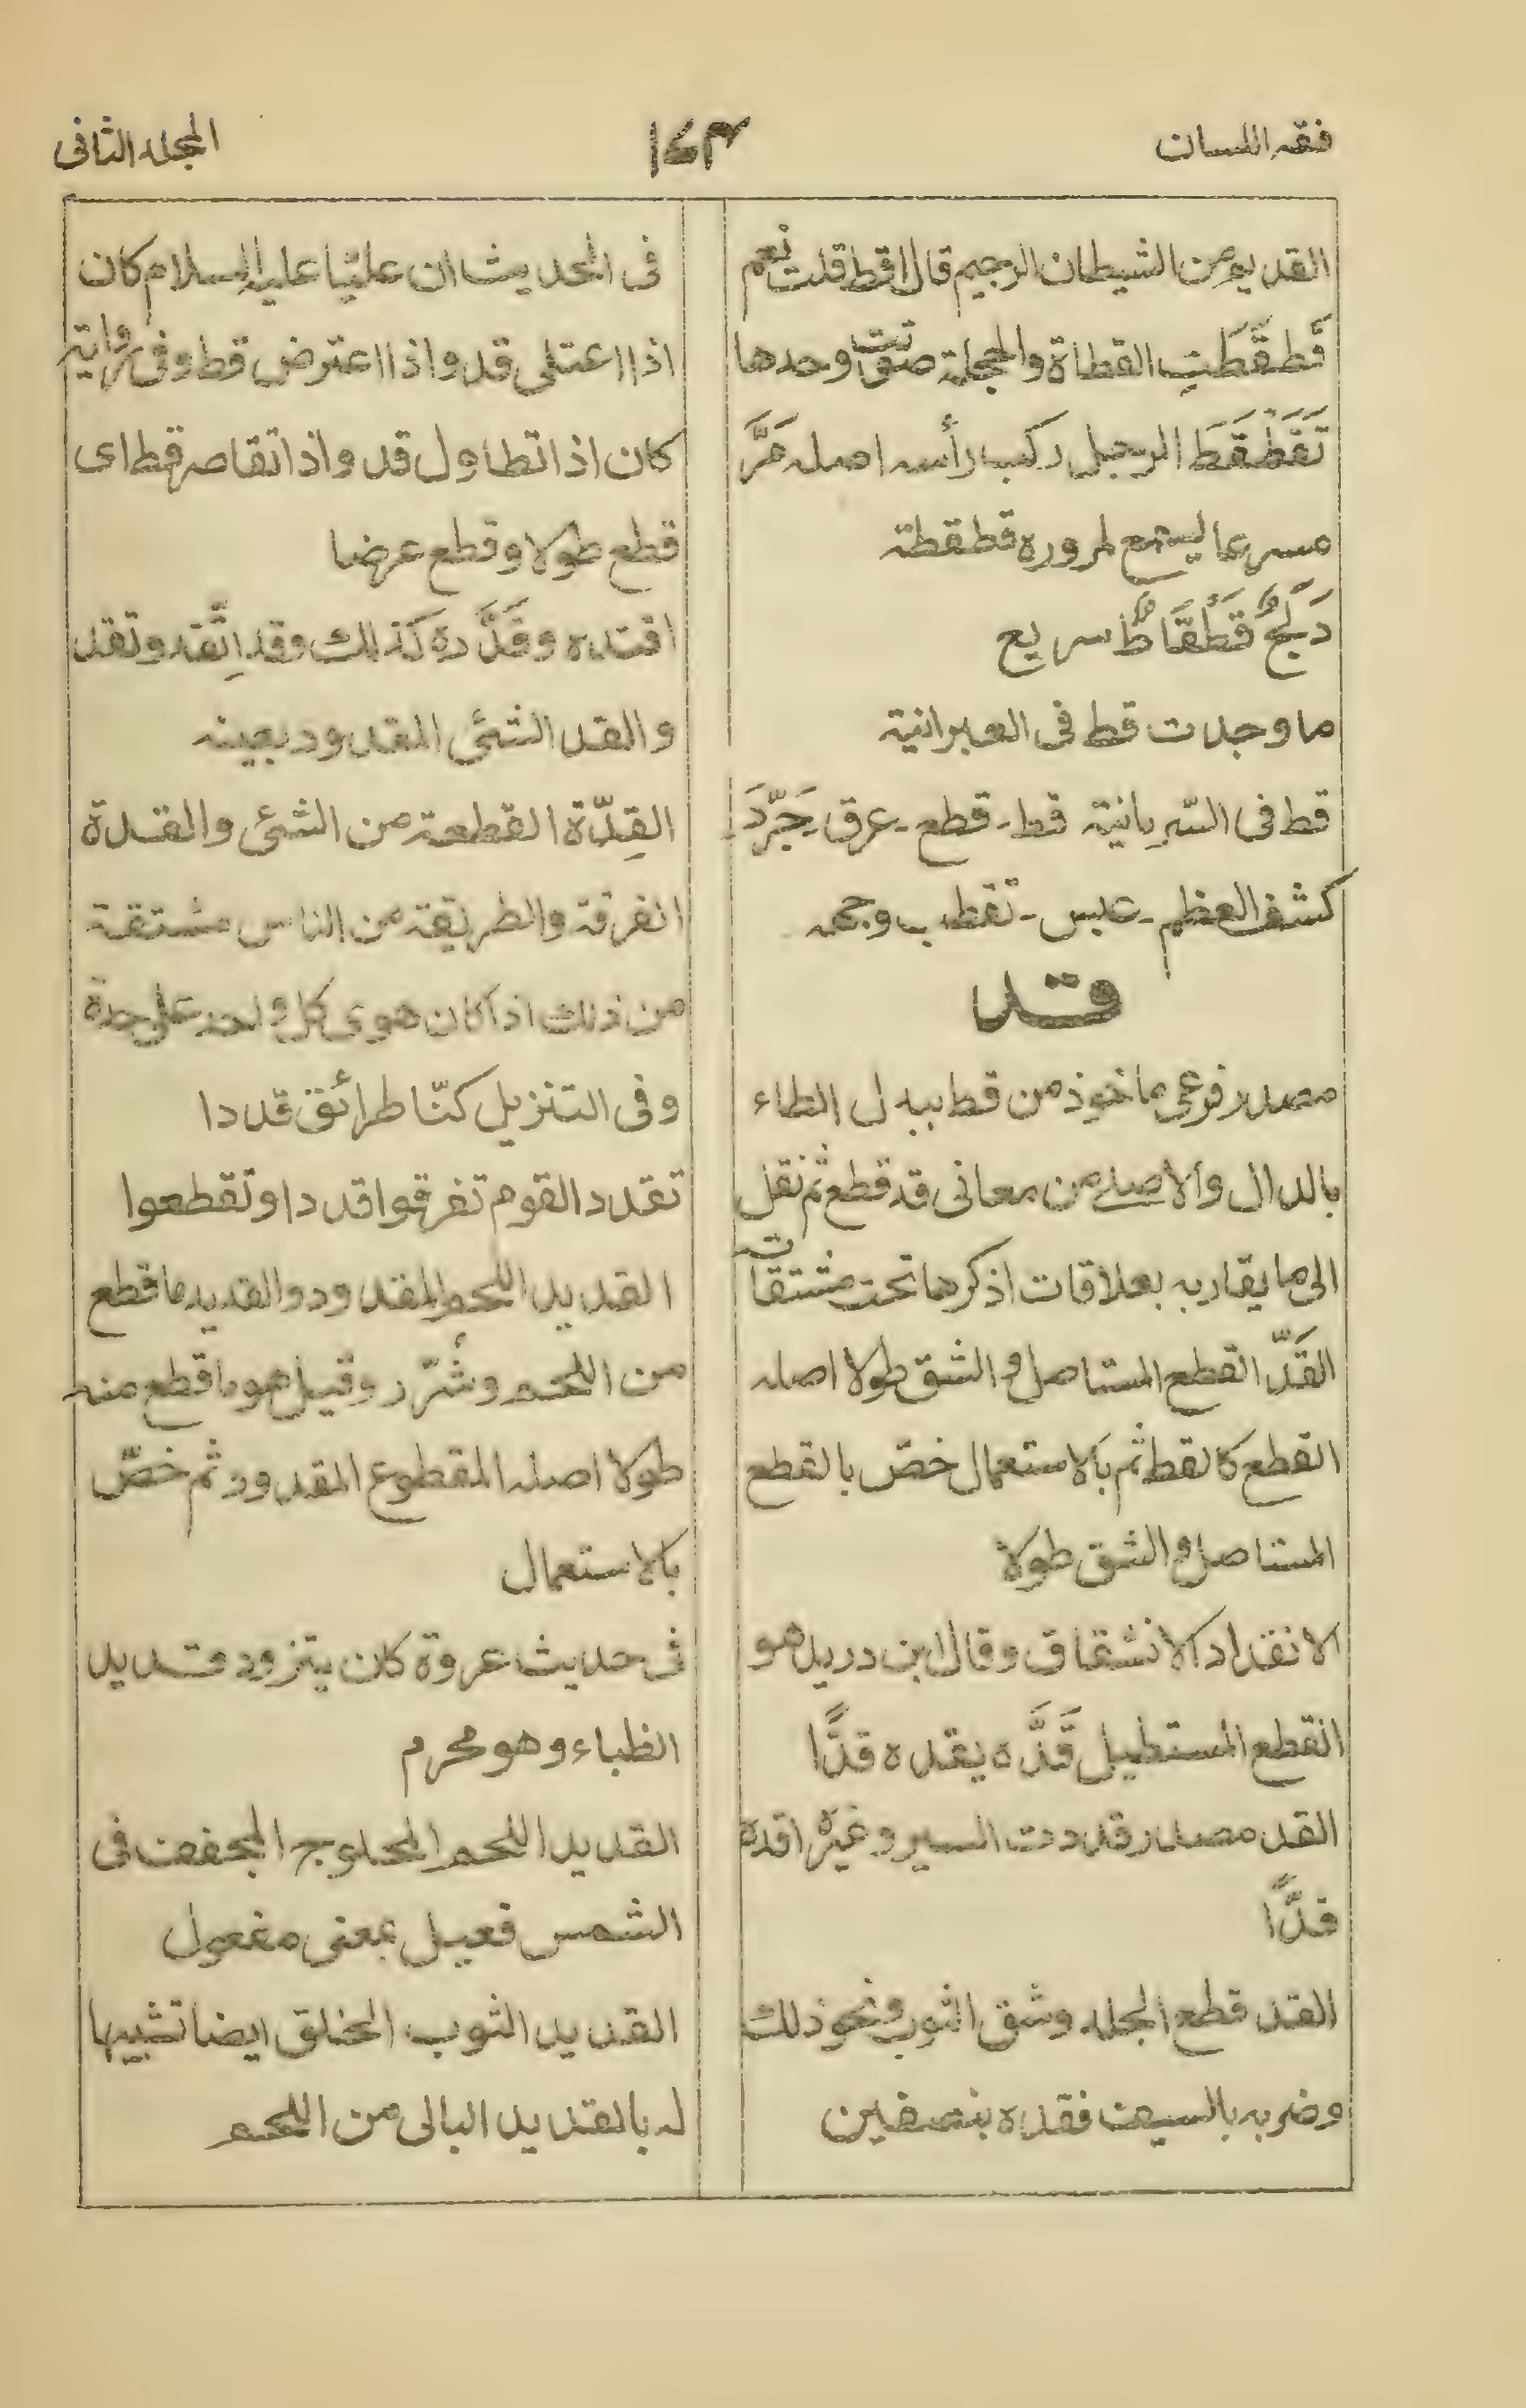 فقه اللسان
١٧٣
المجلد الثانی
القدیم من الشیطان الرجیم قال اقط قلت نعم
قَطقَطَتِ القطاة والحجلة صوّتت وحدها
تَقَطْقَطَ الرجل رکب رأسه اصله مَرَّ
مسرعا لیسمع لمروره قطقطة
دَلَجٌ قَطْقَاطٌ سریع
ما وجدت قط فی العبرانیة
قط فی السّریانیة قط - قطع - عرق - جَرَّدَ
کشف العظم - عبس - تقطب وجهه
قد
مصدر فرعی ماخوذ من قط ببدل الطاء
بالدال والاصلے من معانی قد قطع ثم نقل
الی ما یقاربه بعلاقات اذکرها تحت مشتقات
القَدّ القطع المستاصل و الشق طولا اصله
القطع کالقط ثم بالاستعمال خصّ بالقطع
المستاصل و الشق طولا
الانقداد الانشقاق وقال ابن درید هو
القطع المستطیل قَدَّه یقده قدًّا
القد مصدر قددت السیر وغیره اقده
قدًّا
القد قطع الجلد وشق الثوب ونحو ذلك
وضربه بالسیف فقده بنصفین
فی الحدیث ان علیّا علیه السلام کان
اذا اعتلی قد واذا اعترض قط وفی روایة
کان اذا تطاول قد واذا تقاصر قط ای
قطع طولا وقطع عرضا
اقتده وقَدَّده کذلك وقد اِنقد وتقدد
والقد الشئ المقدود بعینه
القِدّة القطعة من الشئ والقدة
الفرقة والطریقة من الناس مشتقة
من ذلك اذا کان هوی کل واحد علی حدة
وفی التنزیل کنّا طرائق قددا
تقدد القوم تفرقوا قددا وتقطعوا
القدید اللحم المقدود والقدید ما قطع
من اللحم وشُرّر وقیل هو ما قطع منه
طولا اصله المقطوع المقدود ثم خصّ
بالاستعمال
فی حدیث عروة کان یتزود قدید
الظباء وهو محرم
القدید اللحم المملوح المجفف فی
الشمس فعیل بمعنی مفعول
القدید الثوب الخلق ایضا تشبیها
له بالقدید البالی من اللحم